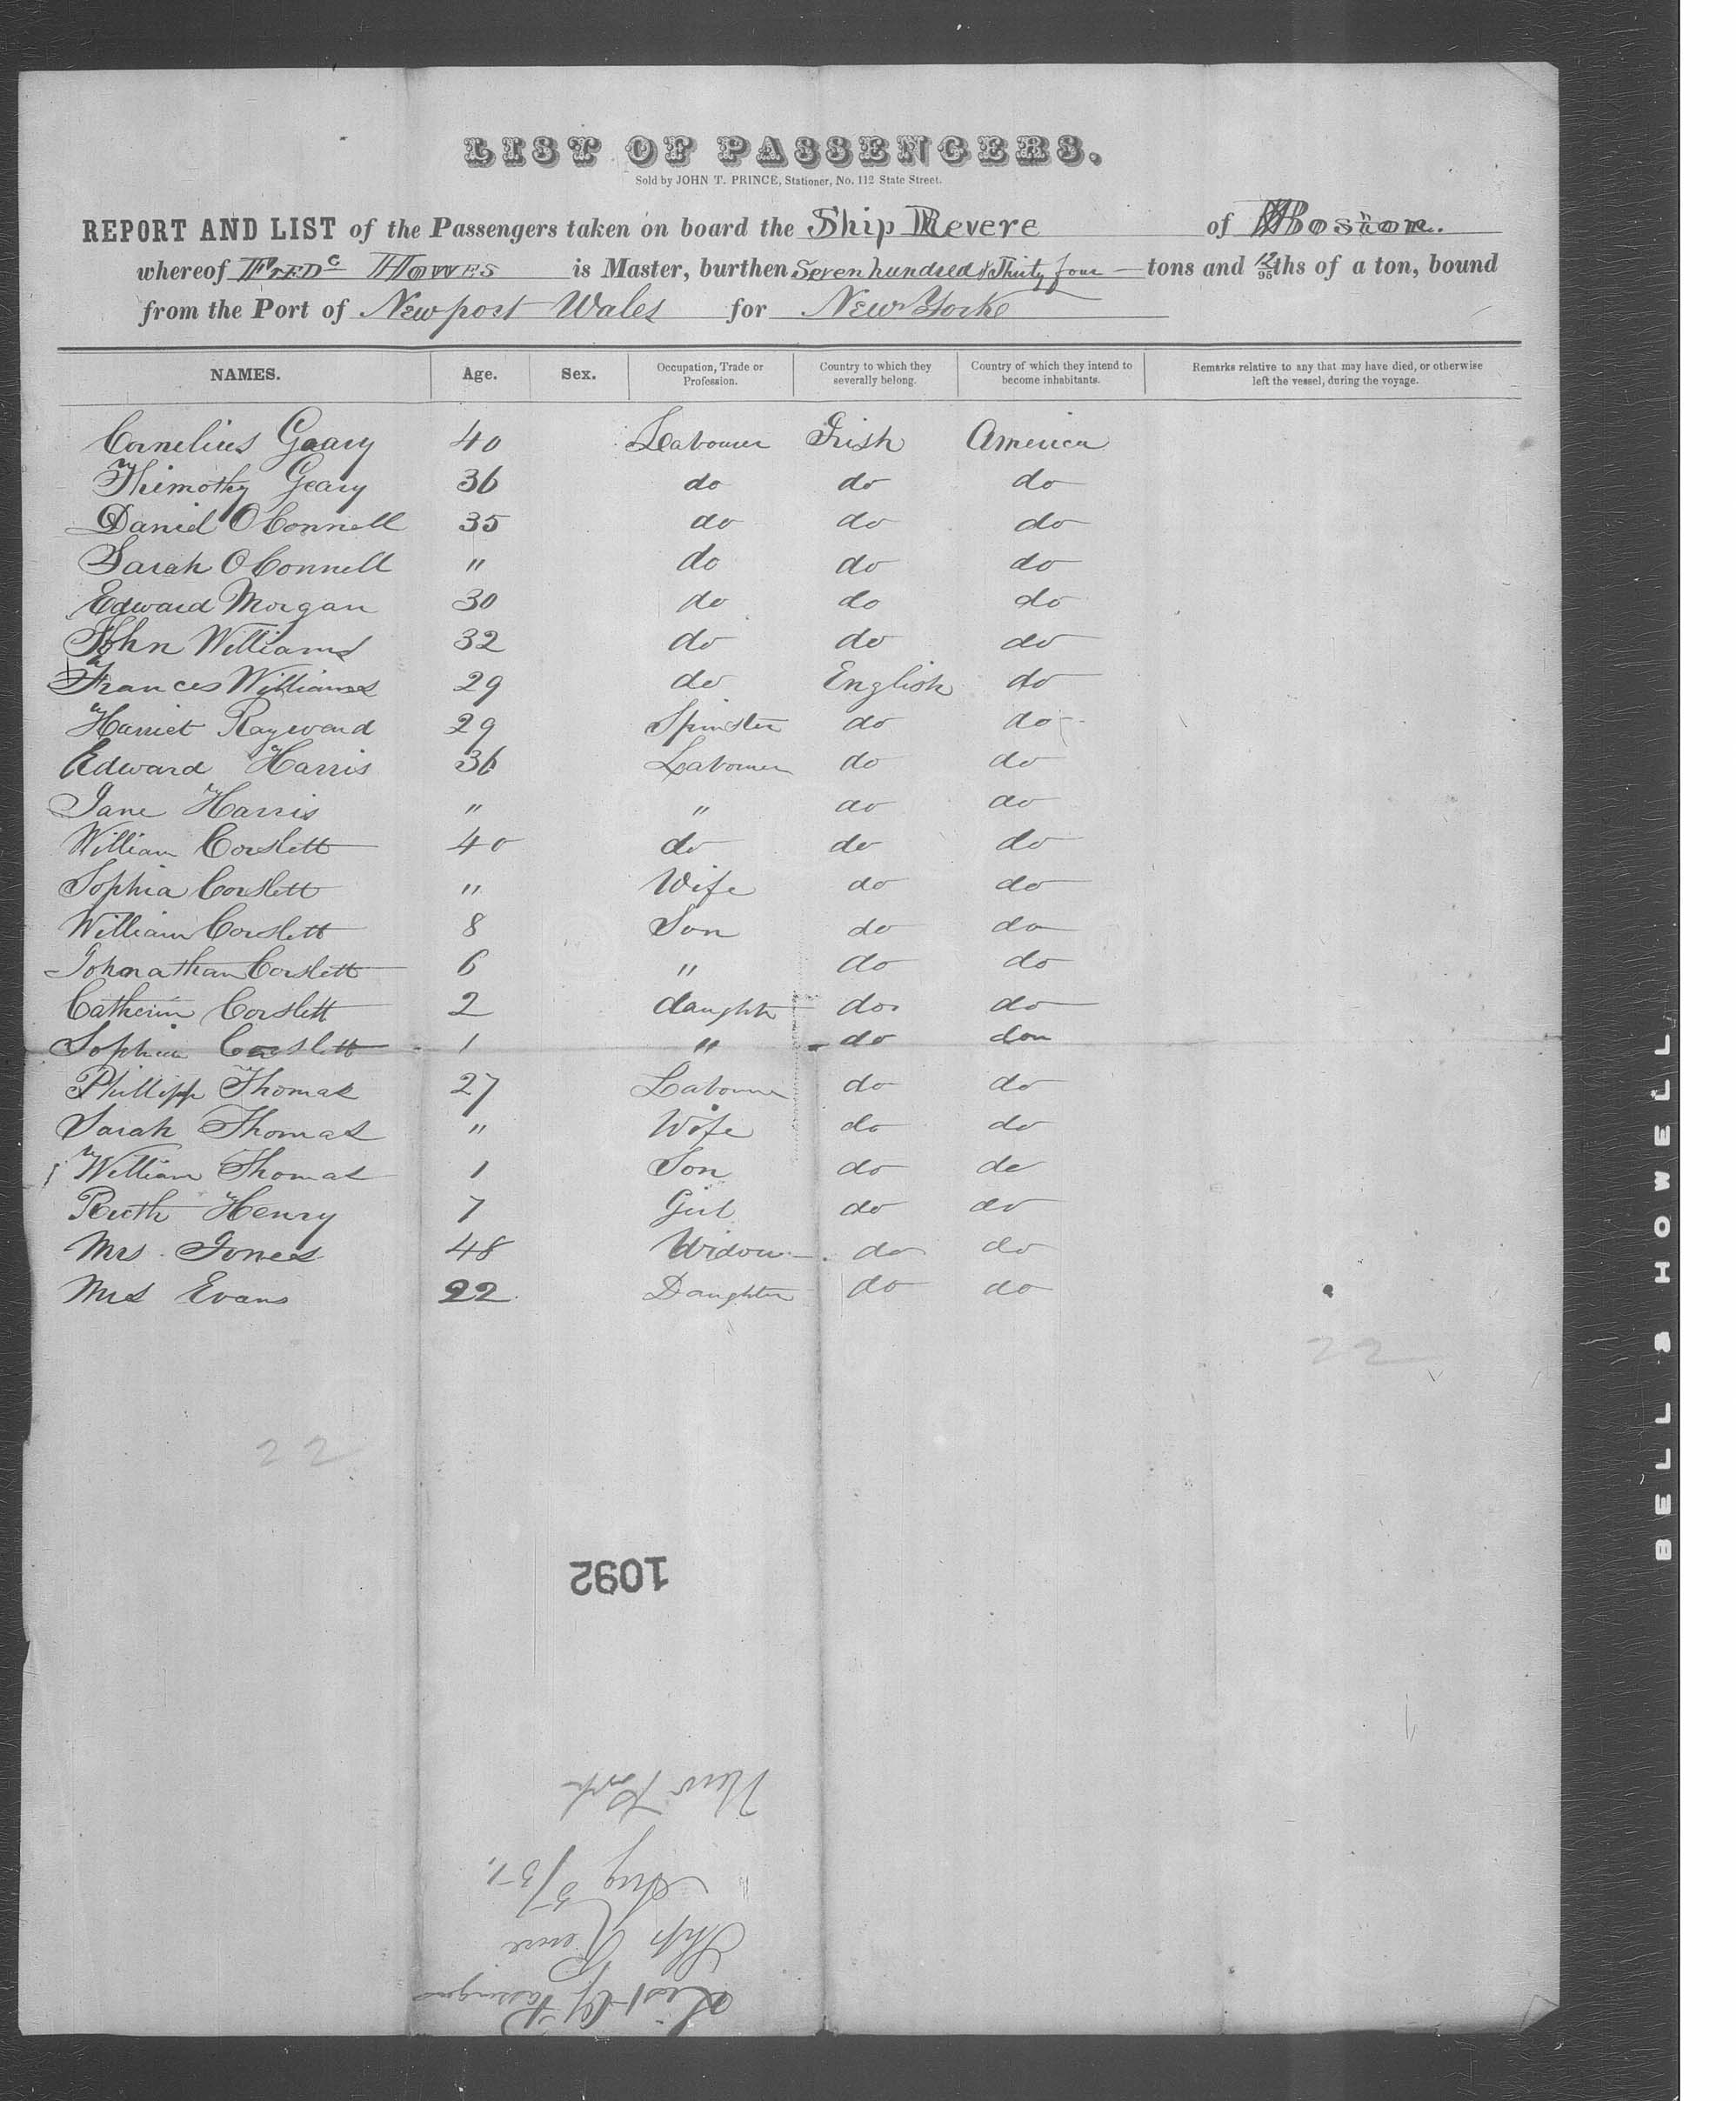 LIST OF PASSENGERS.
Sold by JOHN T. PRINCE, Stationer, No. 112 State Street.
REPORT AND LIST of the Passengers taken on board the Ship Revere of Boston.
whereof Fredc Howes is Master, burthen Seven hundred & Thirty four tons and 12/95ths of a ton, bound
from the Port of Newport Wales for New Yorke
NAMES. Age. Sex. Occupation, Trade or Profession. Country to which they severally belong. Country of which they intend to become inhabitants. Remarks relative to any that may have died, or otherwise left the vessel, during the voyage.
Cornelius Geary 40 Labourer Irish America
Thimothy Geary 36 do do do
Daniel O Connell 35 do do do
Sarah O Connell " do do do
Edward Morgan 30 do do do
John Williams 32 do do do
Frances Williams 29 do English do
Harriet Rayward 29 Spinster do do
Edward Harris 36 Labourer do do
Jane Harris " " do do
William Corslett 40 do do do
Sophia Corslett " Wife do do
William Corslett 8 Son do do
Johnathan Corslett 6 " do do
Catherin Corslett 2 daughtr do do
Sophia Corslett 1 " do do
Phillipp Thomas 27 Labourer do do
Sarah Thomas " Wife do do
William Thomas 1 Son do do
Ruth Henry 7 Girl do do
Mrs. Jones 48 Widow do do
Mrs Evans 22 Daughter do do
22
22
1092
List of Passengers
Ship Revere
Aug 5/51.
New York
BELL & HOWELL